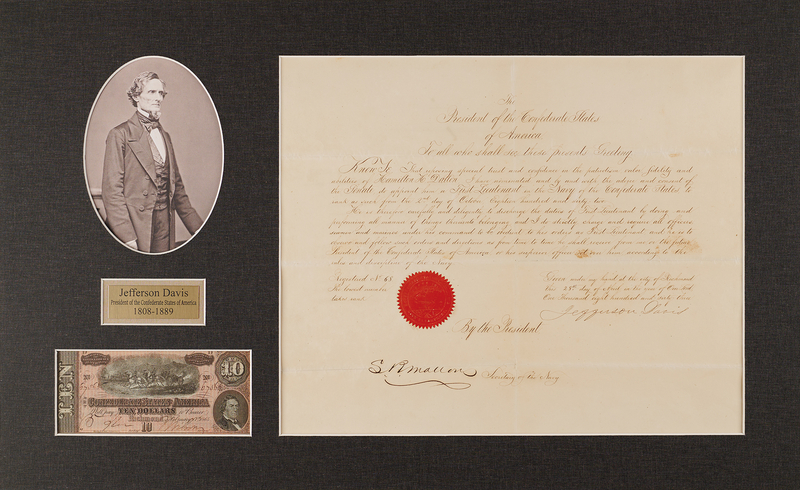 Jefferson Davis
President of the Confederate States of America
1808-1889
TEN
10
CONFEDERATE STATES AMERICA
TEN DOLLARS
Richmond
10
The
President of the Confederate States
of America
To all who shall see these presents Greeting
Know Ye That special trust and confidence in the patriotism valor fidelity and
abilities of Hamilton H. Dalton I have nominated and by and with the advice and consent of
the Senate do appoint him a First Lieutenant in the Navy of the Confederate States to
rank as such from the 2nd day of October Eighteen hundred and sixty two
He is therefore carefully and diligently to discharge the duties of First Lieutenant by doing and
performing all manner of things thereunto belonging and I do strictly charge and require all officers
seamen and marines under his command to be obedient to his orders as First Lieutenant and he is to
observe and follow such orders and directions as from time to time he shall receive from me or the future
President of the Confederate States of America or his superior officer set over him according to the
rules and discipline of the Navy
Registered No 68
Given under my hand at the city of Richmond
this day of in the year of Our Lord
One Thousand eight hundred and sixty three
Jefferson Davis
By the President
S. R. Mallory
Secretary of the Navy